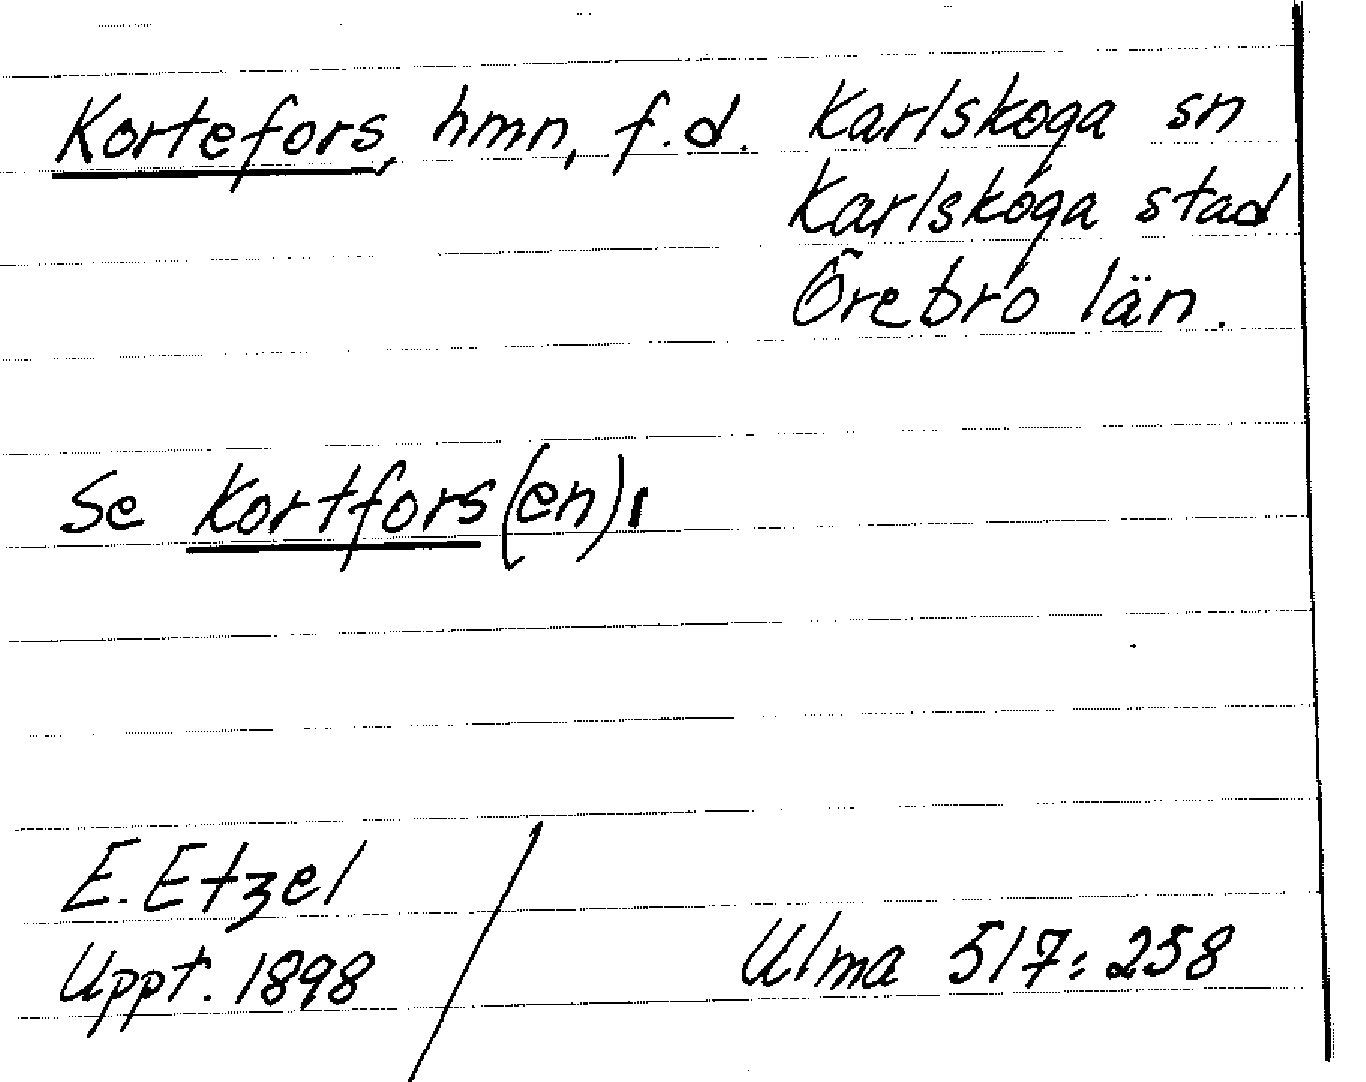 Kortefors, hmn, f.d. Karlskoga sn
Karlskoga stad
Örebro län.
Se Kortfors(en).
E. Etzel
Uppt. 1898
Ulma 517:258